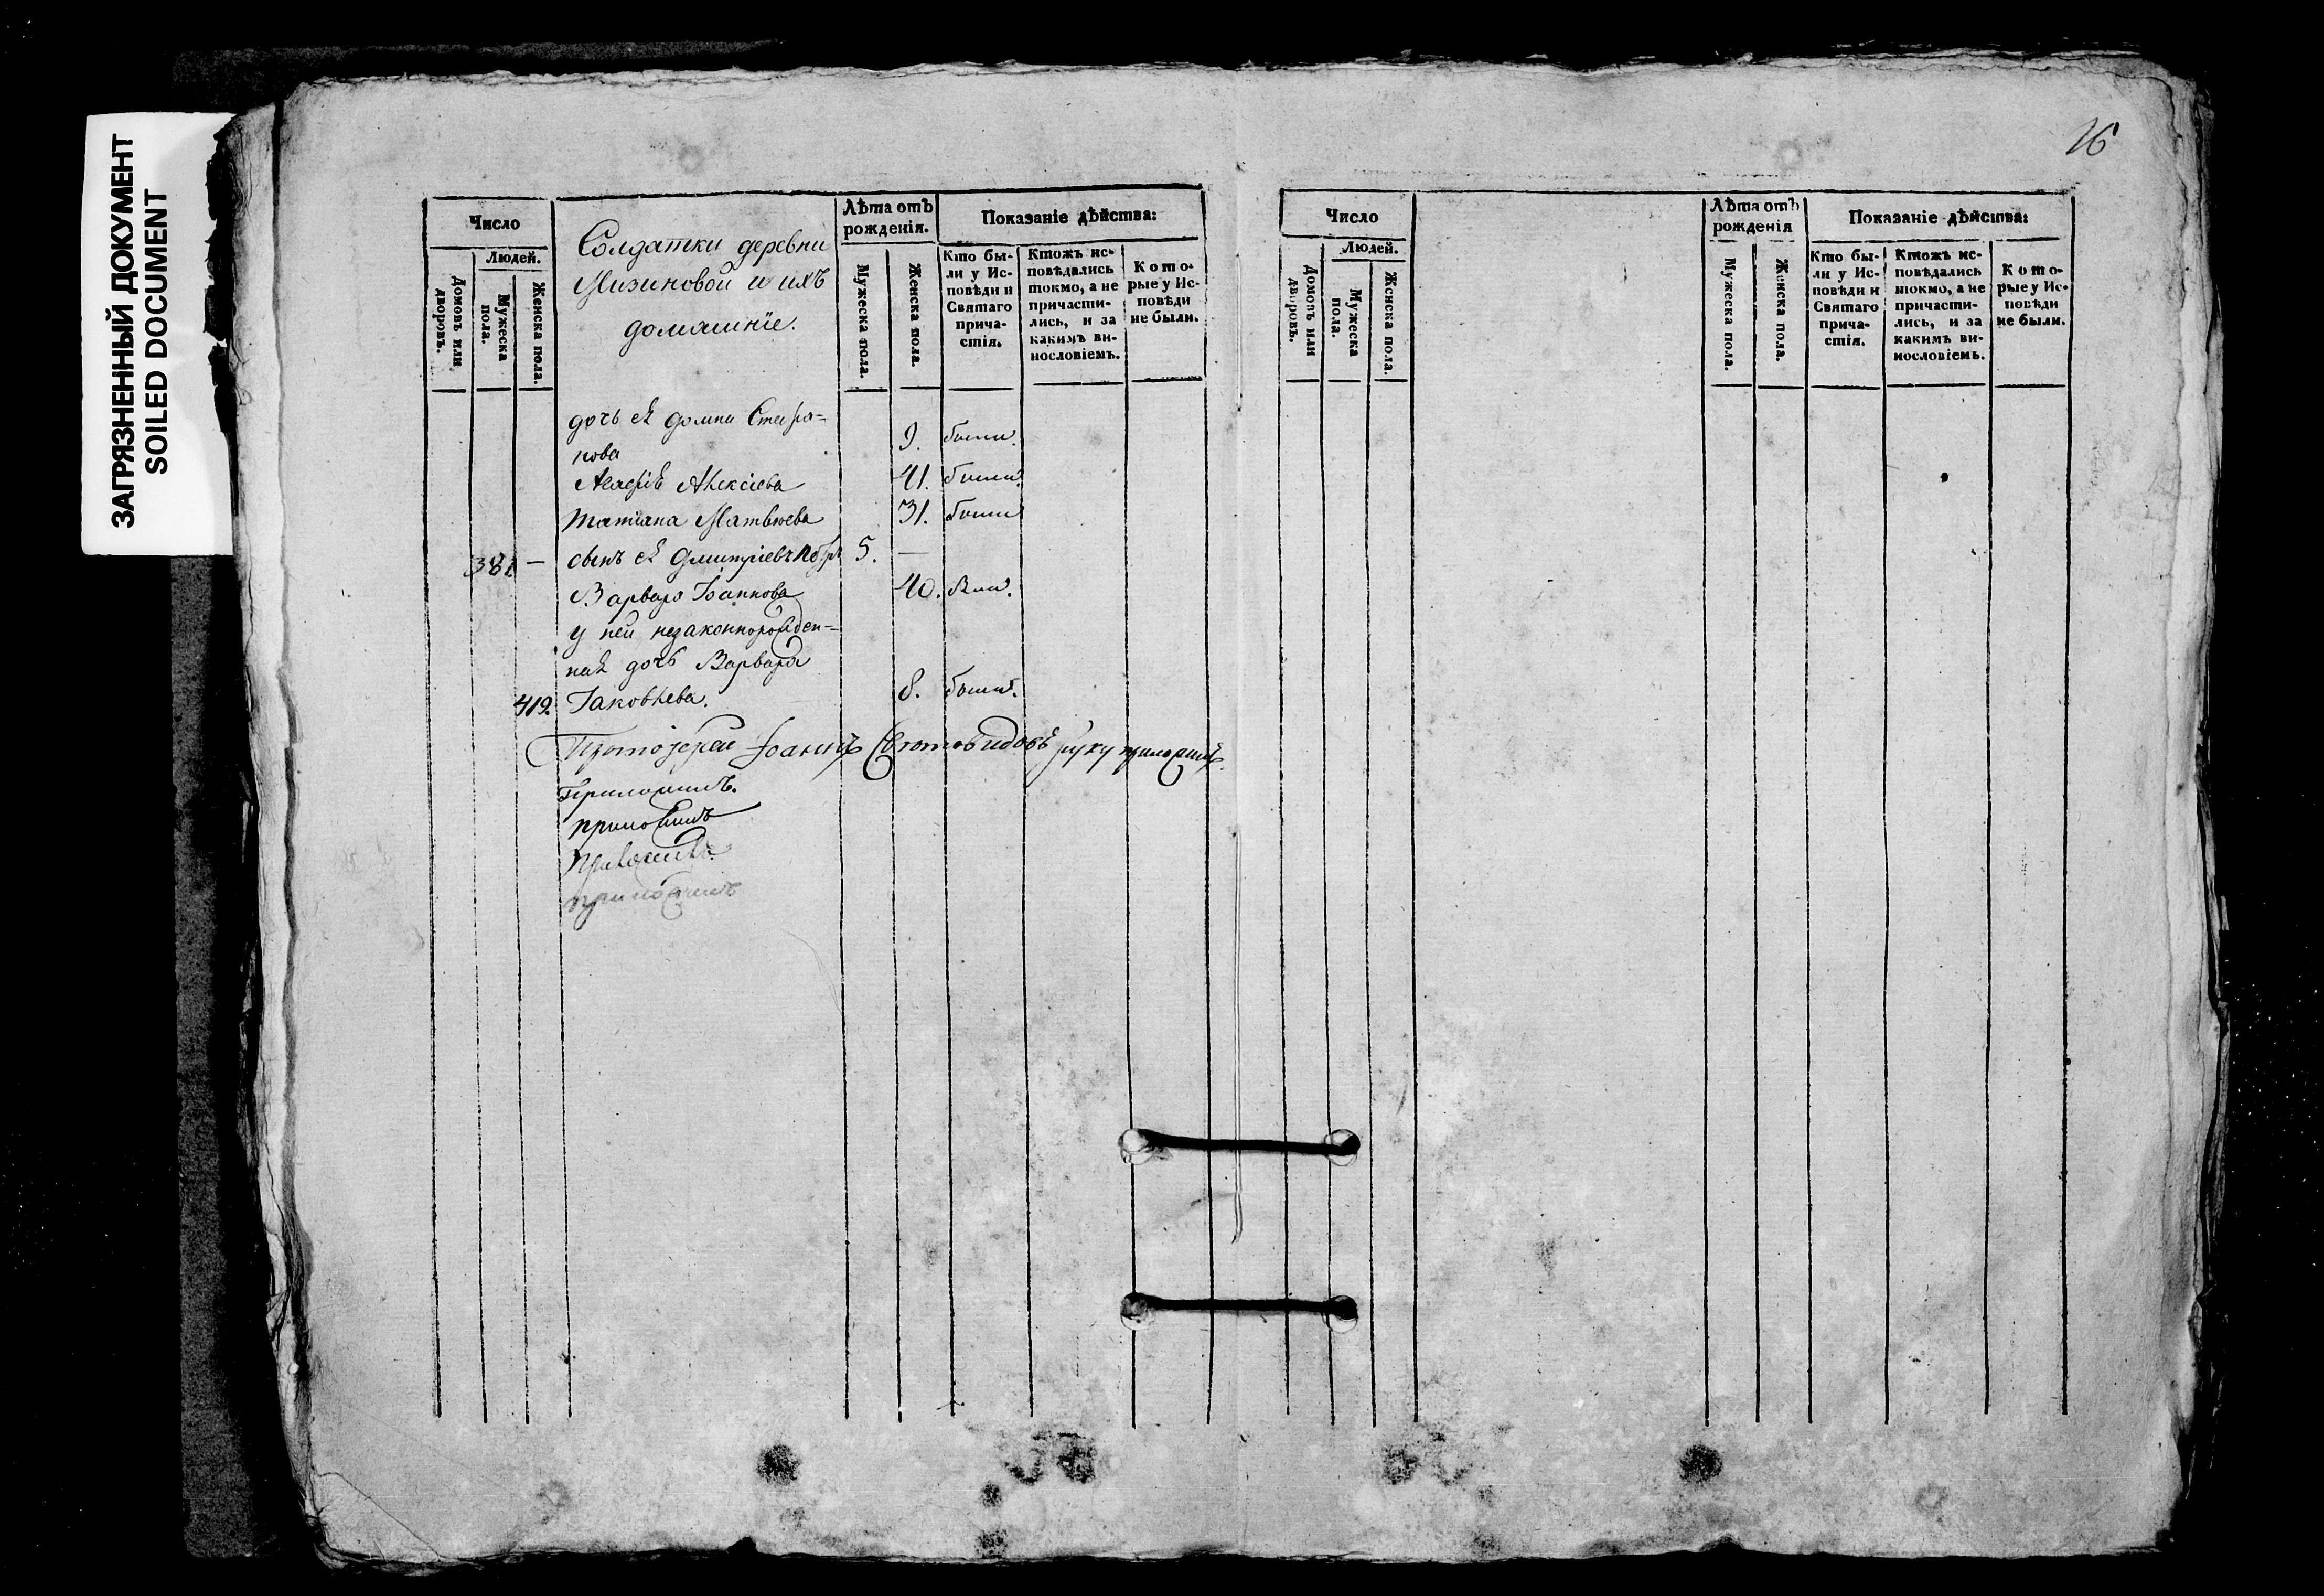 ЗАГРЯЗНЕННЫЙ ДОКУМЕНТ
SOILED DOCUMENT
16
Число
Людей.
Домовъ или дворовъ.
Мужеска пола.
Женска пола.
Солдатки деревни
Мизиновой и ихъ
домашніе.
Лѣта отъ рожденія.
Мужеска пола.
Женска пола.
Показаніе дѣйства:
Кто были у Исповѣди и Святаго причастія.
Ктожъ исповѣдались токмо, а не причастились, и за какимъ винословіемъ.
Которые у Исповѣди не были.
дочь ея Домна Стефа=
нова 9. были.
Марія Алексіева 41. были.
Татіана Матвѣева 31. были
381 — сынъ ея Дмитріевъ Петръ 5. —
Варвара Іоаннова 40. были.
у ней незаконнорожден=
ная дочь Варвара
419. Іаковлева. 8. были.
Протоіерей Іоаннъ Святовидовъ руку приложилъ.
Приложилъ.
приложилъ
Приложилъ.
приложилъ
Число
Людей.
Домовъ или дворовъ.
Мужеска пола.
Женска пола.
Лѣта отъ рожденія
Мужеска пола.
Женска пола.
Показаніе дѣйства:
Кто были у Исповѣди и Святаго причастія.
Ктожъ исповѣдались токмо, а не причастились, и за какимъ винословіемъ.
Которые у Исповѣди не были.